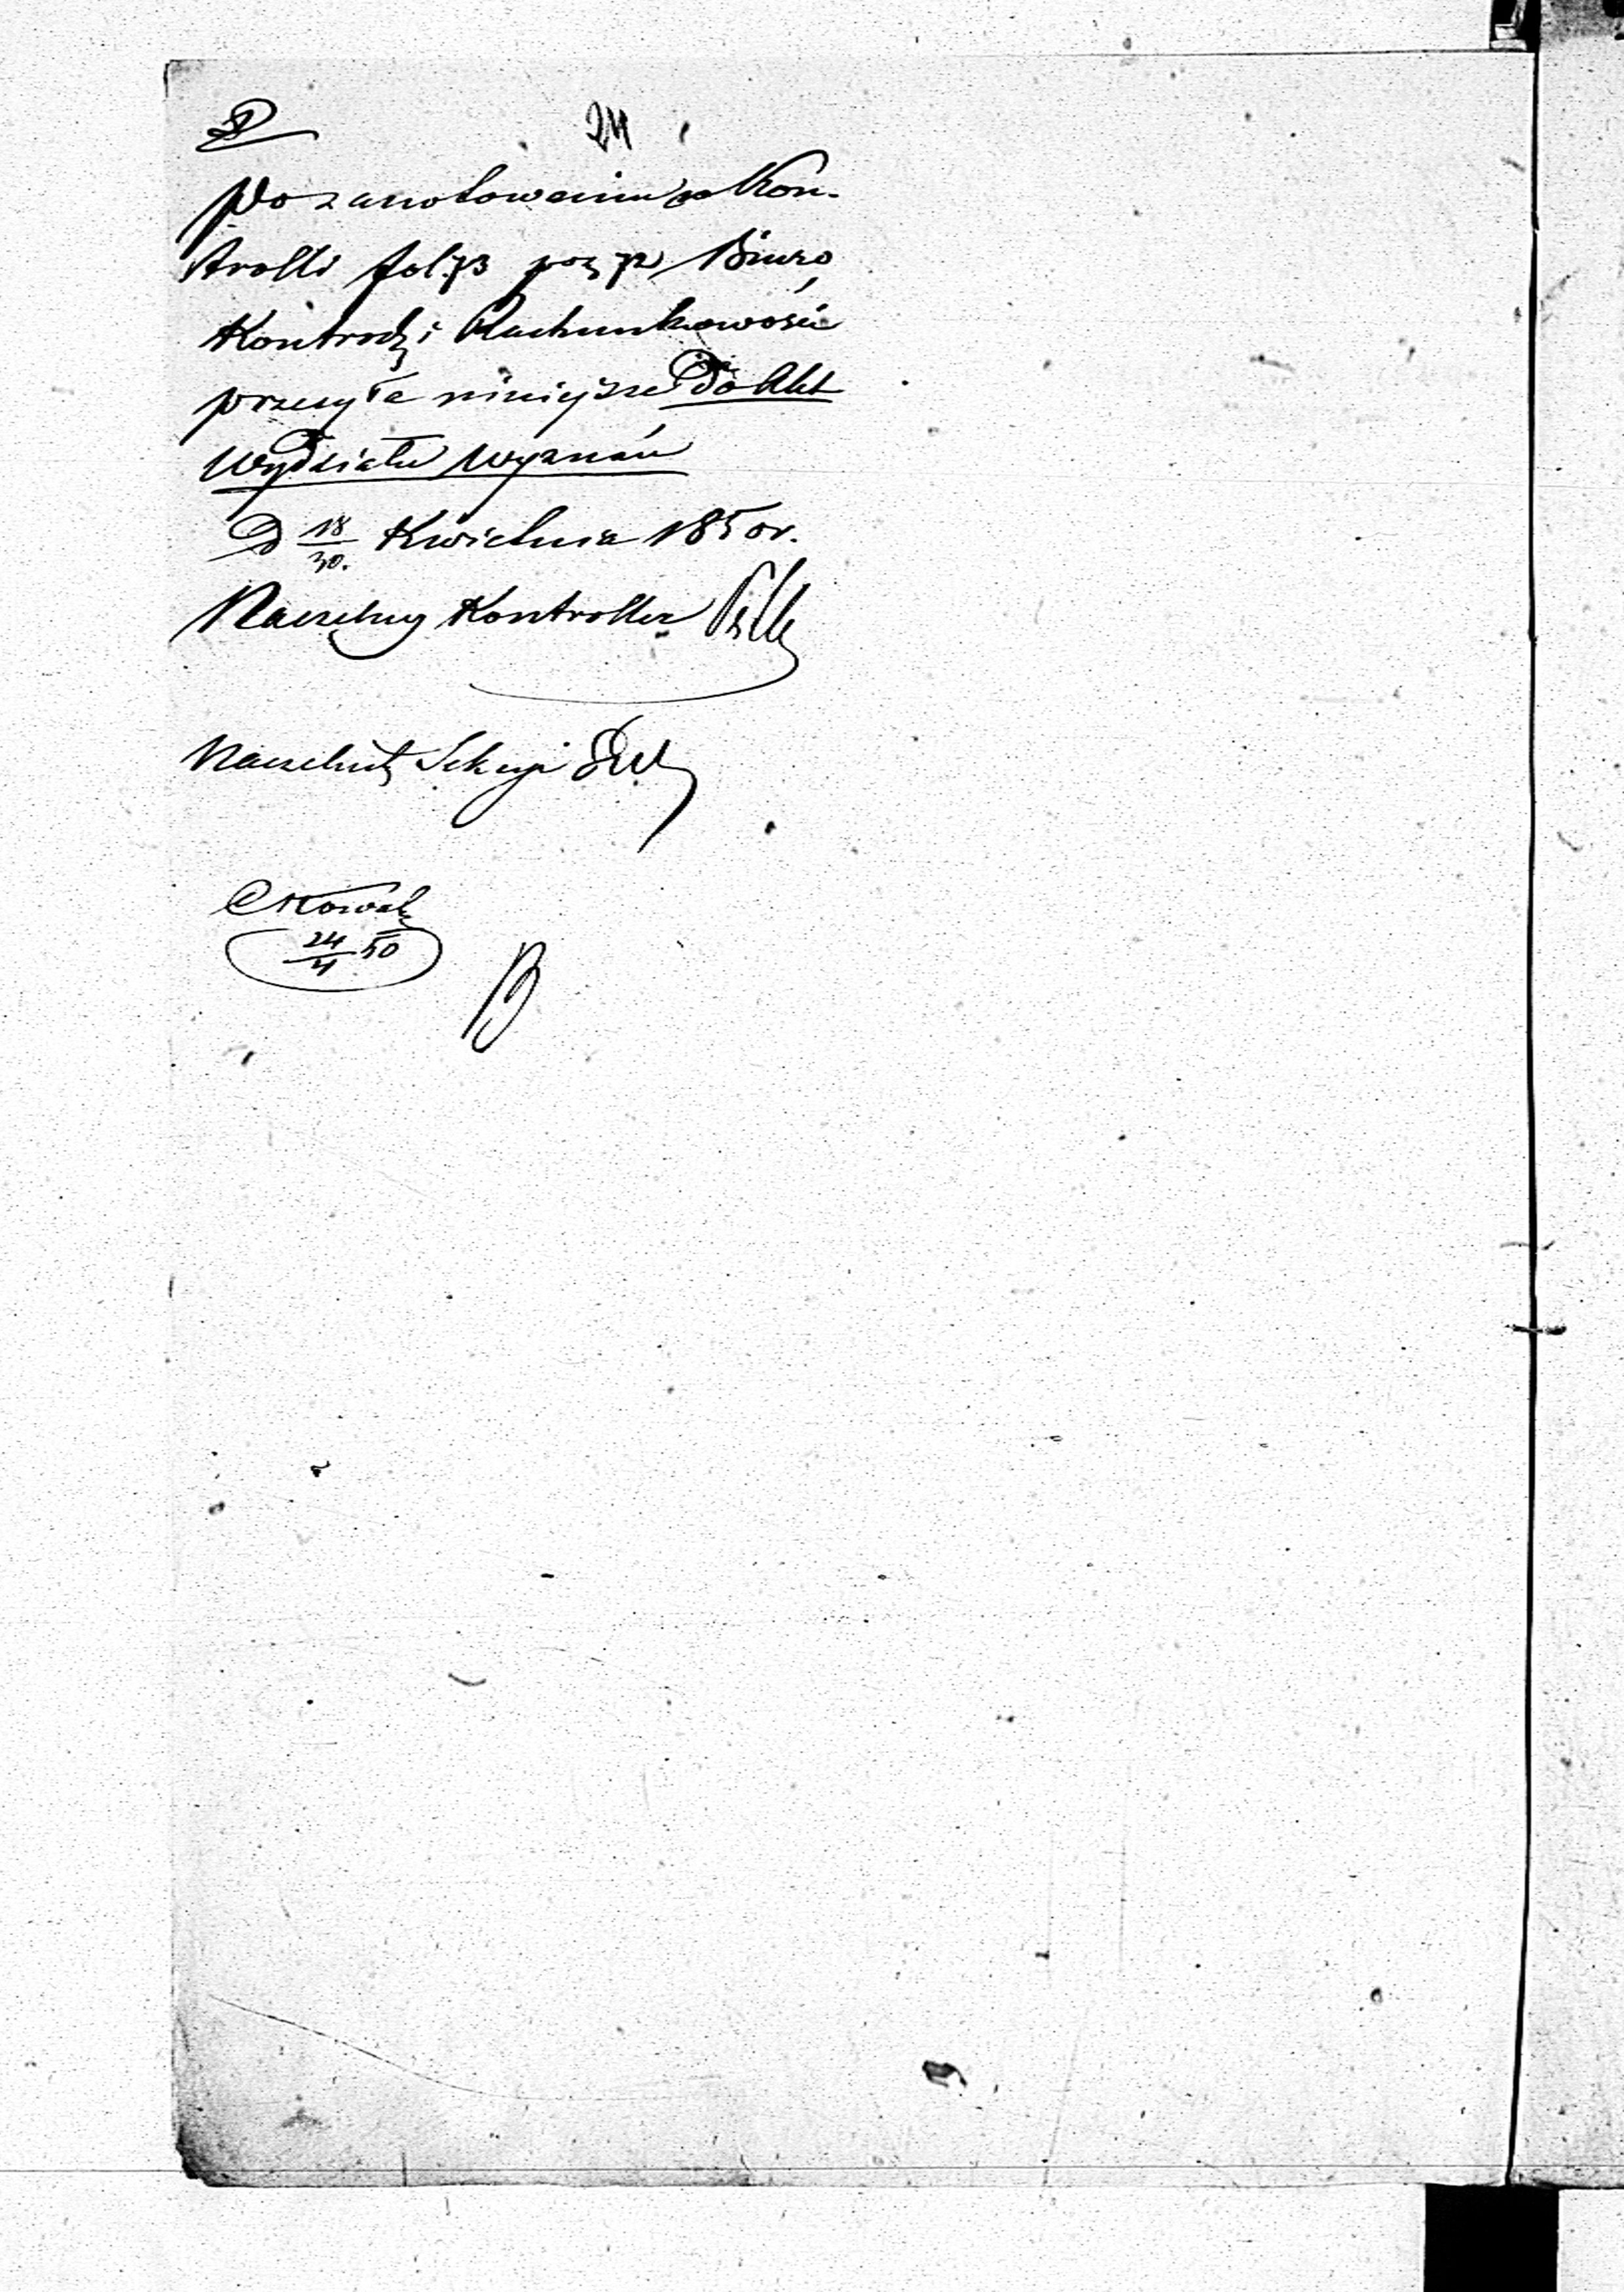 24
Po zanotowaniu w Kon-
trolli fol 73 poz 72 Biuro
Kontroli i Rachunkowości
przesyła niniejsze do Akt
Wydziału Wyznań
D 18/30. Kwietnia 1850 r.
Naczelny Kontroller
Naczelnik Sekcyi
24/4 50